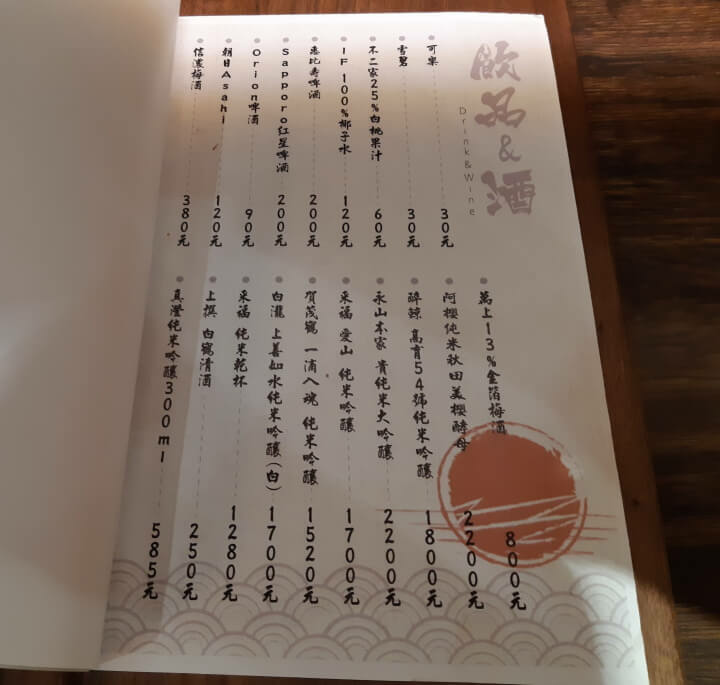 飲品&酒
Drink&Wine
可樂 30元
雪碧 30元
不二家25%白桃果汁 60元
IF 100%椰子水 120元
惠比壽啤酒 200元
Sapporo紅星啤酒 200元
Orion啤酒 90元
朝日Asahi 120元
信濃梅酒 380元
萬上13%金箔梅酒 800元
阿櫻純米秋田美櫻酵母 2200元
醉鯨 高育54號純米吟釀 1800元
永山本家 貴純米大吟釀 2200元
来福 愛山 純米吟釀 1700元
賀茂鶴 一滴入魂 純米吟釀 1520元
白瀧 上善如水純米吟釀(白) 1700元
来福 純米乾杯 1280元
上撰 白鶴清酒 250元
真澄純米吟釀300ml 585元